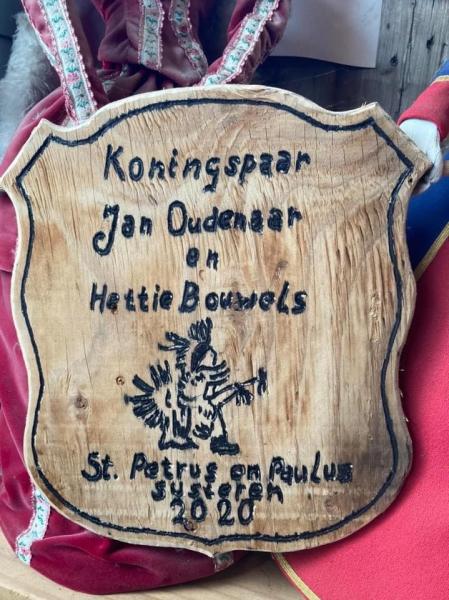 Koningspaar
Jan Oudenaar
en
Hettie Bouwels
St. Petrus en Paulus
susteren
2020